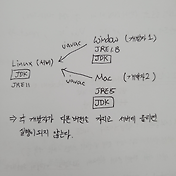 Window (개발자 1)
JRE 1.8
JDK
Linux (서버)
JDK
JRE 11
Mac (개발자 2)
JRE 15
JDK
⇒ 각 개발자가 다른 버전을 가지고 서버에 올리면
실행이 되지 않는다.